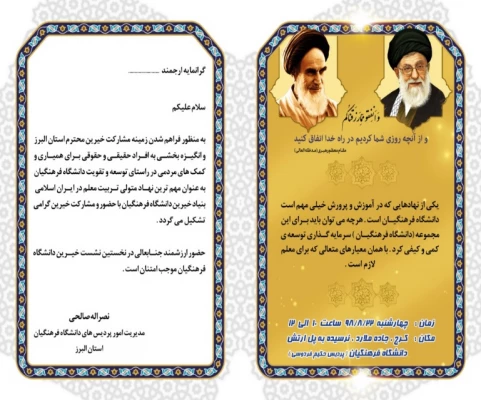 گرانمایه ارجمند ......................
سلام علیکم
به منظور فراهم شدن زمینه مشارکت خیرین محترم استان البرز
و انگیزه بخشی به افراد حقیقی و حقوقی برای همیاری و
کمک های مردمی در راستای توسعه و تقویت دانشگاه فرهنگیان
به عنوان مهم ترین نهاد متولی تربیت معلم در ایران اسلامی
بنیاد خیرین دانشگاه فرهنگیان با حضور و مشارکت خیرین گرامی
تشکیل می گردد .
حضور ارزشمند جنابعالی در نخستین نشست خیرین دانشگاه
فرهنگیان موجب امتنان است .
نصراله صالحی
مدیریت امور پردیس های دانشگاه فرهنگیان
استان البرز
و انفقوا مما رزقناکم
و از آنچه روزی شما کردیم در راه خدا انفاق کنید
یکی از نهادهایی که در آموزش و پرورش خیلی مهم است
دانشگاه فرهنگیان است . هرچه می توان باید برای این
مجموعه (دانشگاه فرهنگیان) سرمایه گذاری توسعه ی
کمی و کیفی کرد . با همان معیارهای متعالی که برای معلم
لازم است .
زمان : چهارشنبه ۹۸/۸/۲۲ ساعت ۱۰ الی ۱۲
مکان : کرج . جاده ملارد . نرسیده به پل ارتش
دانشگاه فرهنگیان (پردیس حکیم فردوسی)